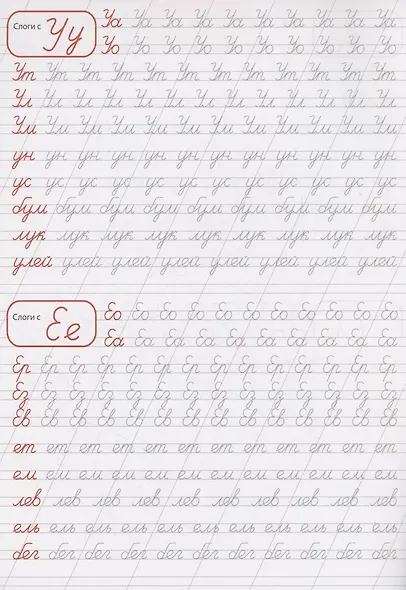 Слоги с Уу
Уа Уа Уа Уа Уа Уа Уа Уа Уа Уа
Уо Уо Уо Уо Уо Уо Уо Уо Уо Уо
Ут Ут Ут Ут Ут Ут Ут Ут Ут Ут Ут Ут
Ул Ул Ул Ул Ул Ул Ул Ул Ул Ул Ул Ул
Ум Ум Ум Ум Ум Ум Ум Ум Ум Ум Ум Ум
ун ун ун ун ун ун ун ун ун ун ун ун
ус ус ус ус ус ус ус ус ус ус ус ус
бум бум бум бум бум бум бум бум бум
лук лук лук лук лук лук лук лук лук
улей улей улей улей улей улей улей улей
Слоги с Ее
Ео Ео Ео Ео Ео Ео Ео Ео Ео Ео
Еа Еа Еа Еа Еа Еа Еа Еа Еа Еа
Ер Ер Ер Ер Ер Ер Ер Ер Ер Ер Ер Ер Ер
Ез Ез Ез Ез Ез Ез Ез Ез Ез Ез Ез Ез Ез
Ев Ев Ев Ев Ев Ев Ев Ев Ев Ев Ев Ев Ев
ет ет ет ет ет ет ет ет ет ет ет ет
ем ем ем ем ем ем ем ем ем ем ем ем
лев лев лев лев лев лев лев лев лев лев
ель ель ель ель ель ель ель ель ель ель ель
бег бег бег бег бег бег бег бег бег бег